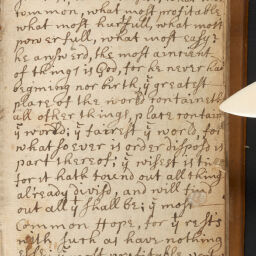 common, what most profitable
what most hurtfull, what most
powerfull, what most easy?
he answerd, the most aincient
of things is God, for he never had
begining nor birth, yͤ greatest
place of the world containeth
all other things, place contain
yͤ world; yͤ fairest yͤ world, for
whatsoever is order dispos'd is
part thereof; yͤ wisest is time
for it hath found out all thing
already divis'd, and will find
out all yͭ shall be; yͤ most
Common Hope, for yͭ rests
with such as have nothing
else; yͤ most profitable